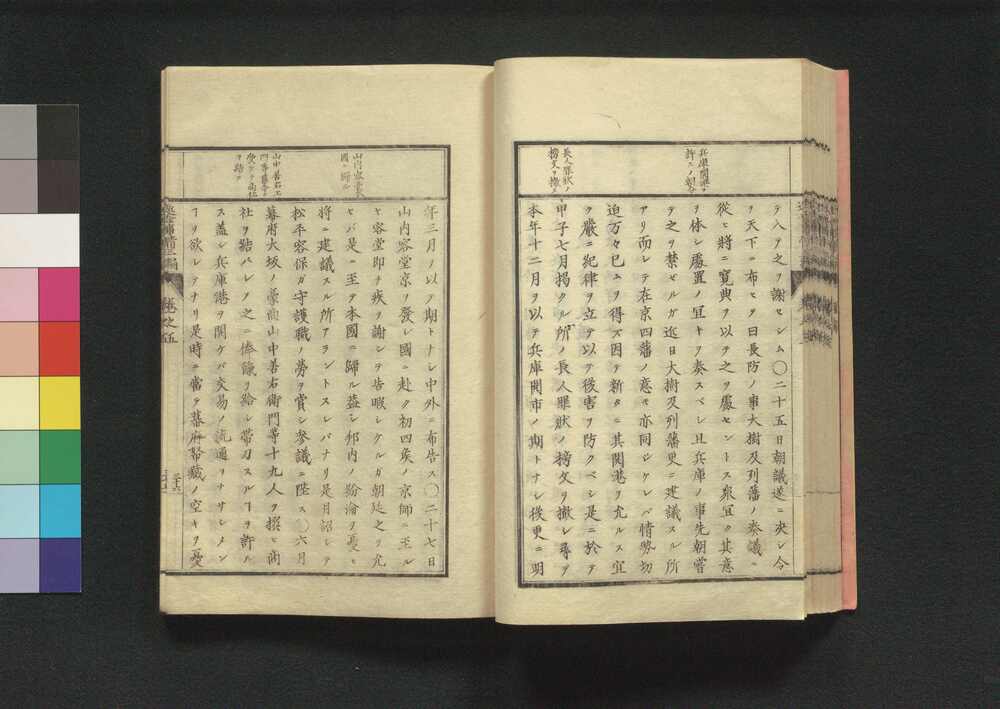 兵庫開港ヲ
許スノ朝令
長人罪狀ノ
榜文ヲ撤ス
テ入テ之ヲ謝セシム〇二十五日朝議遂ニ决シ令
ヲ天下ニ布ヒテ曰長防ノ事大樹及列藩ノ奏議ニ
從ヒ將ニ寛典ヲ以テ之ヲ處セントス衆宜ク其意
ヲ体シ處置ノ宜キヲ奏スベシ且兵庫ノ事先朝嘗
テ之ヲ禁ゼルガ近日大樹及列藩更ニ建議スル所
アリ而シテ在京四藩ノ意モ亦同ジケレバ情勢切
迫万々已ムヲ得ズ因テ新タニ其開港ヲ允ルス宜
ク嚴ニ紀律ヲ立テ以テ後害ヲ防クベシ是ニ於テ
甲子七月揭クル所ノ長人罪狀ノ榜文ヲ撤シ尋テ
本年十二月ヲ以テ兵庫開市ノ期トナシ後更ニ明
山内容堂
國ニ歸ル
山中善右エ
年三月ヲ以テ期トナシ中外ニ布告ス〇二十七日
山内容堂京ヲ發シ國ニ赴ク初四矦ノ京師ニ至ル
ヤ容堂即チ疾ヲ謝シテ告暇シケルガ朝廷之ヲ允
セバ是ニ至テ本國ニ歸ル蓋シ邦内ノ紛淪ヲ憂ヒ
將ニ建議スル所アラントスレバナリ是月詔シテ
松平容保ガ守護職ノ勞ヲ賞シ參議ニ陞ス〇六月
幕府大坂ノ豪商山中善右衛門等十九人ヲ招ヒ商
社ヲ結バレメ之ニ俸餼ヲ給シ帶刀スルヿヲ許ル
ス蓋シ兵庫港ヲ開ケバ交易ノ流通ヲナサシメン
ヿヲ欲シテナリ是時ニ當テ幕府帑藏ノ空キヲ憂
卷之五
三十六